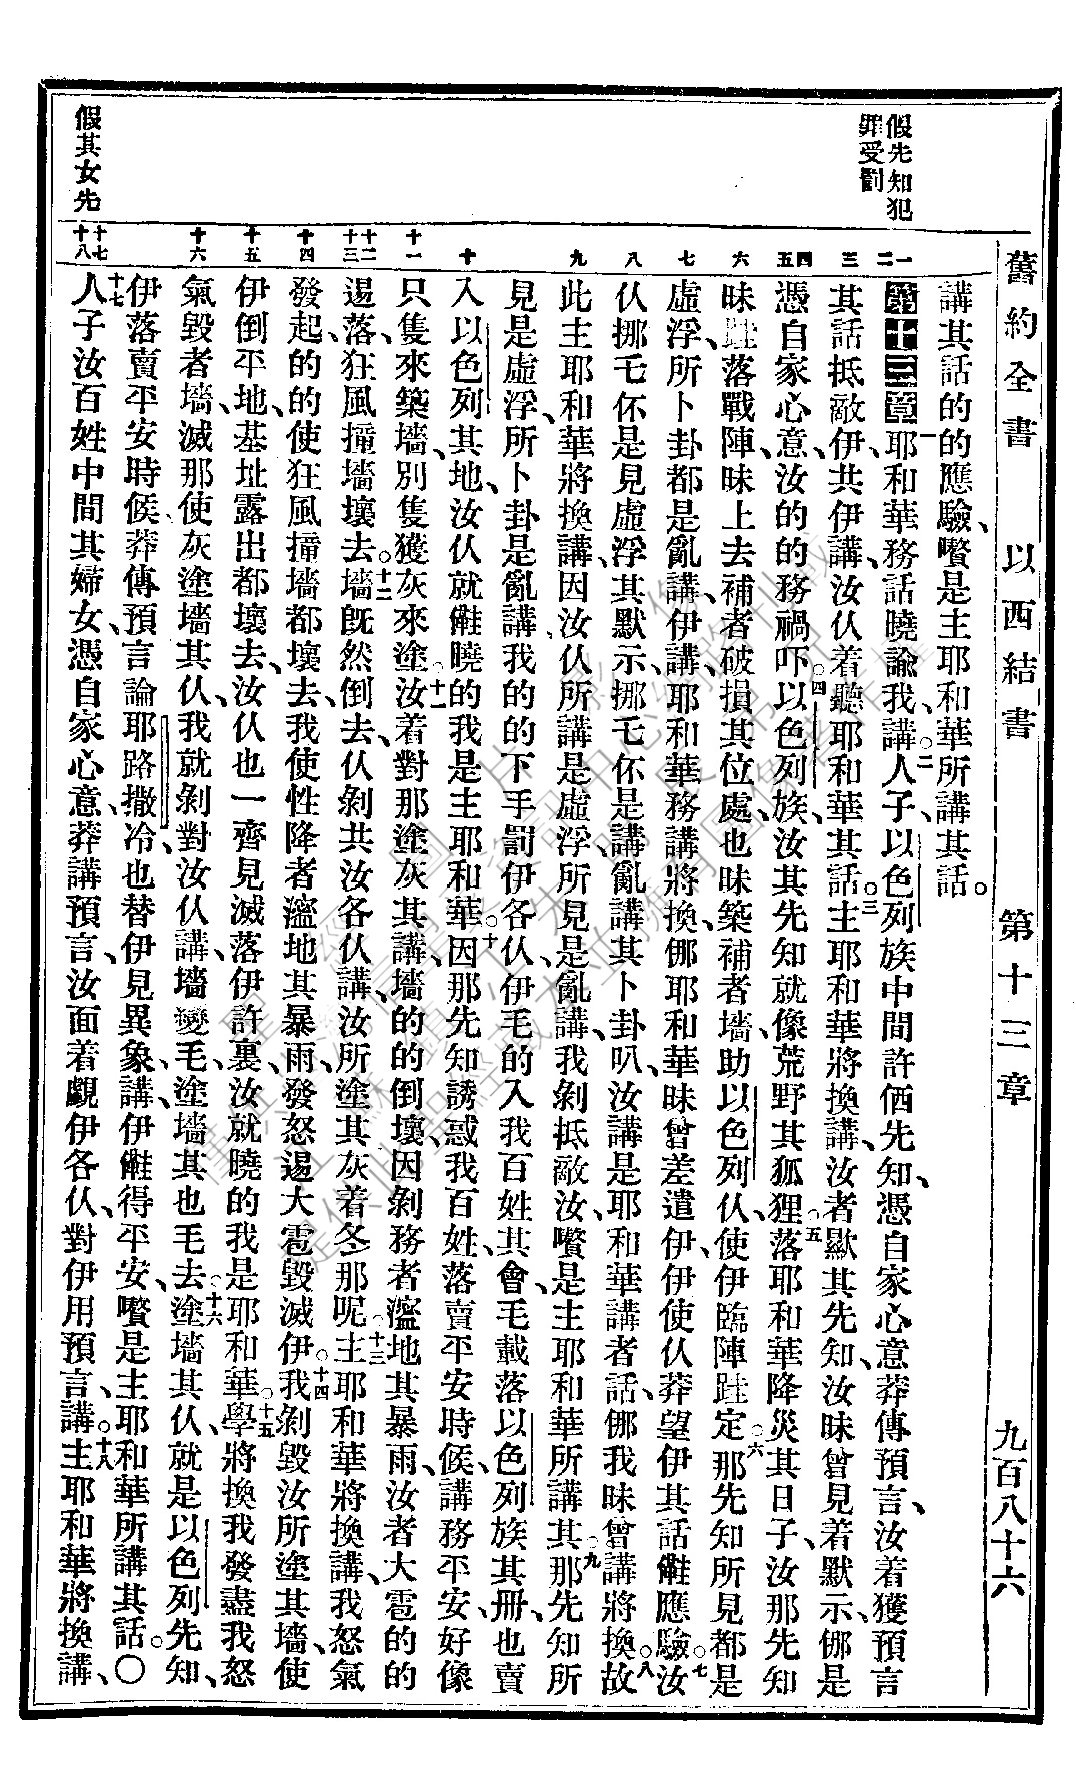 舊約全書 以西結書 第十三章 九百八十六
假先知犯
罪受罰
假其女先
講其話的的應驗、嚽是主耶和華所講其話。
第十三章 一耶和華務話曉諭我、講。二人子、以色列族中間許價先知、憑自家心意莽傳預言、汝着獲預言
其話抵敵伊、共伊講、汝仈着聽耶和華其話。三主耶和華將換講、汝者獃其先知、汝昧曾見着默示、㑚是
憑自家心意、汝的的務禍吓。四以色列族、汝其先知就像荒野其狐狸。五落耶和華降災其日子、汝那先知
昧跬落戰陣、昧上去補者破損其位處、也昧築補者墻助以色列仈、使伊臨陣跬定。六那先知所見都是
虛浮、所卜卦都是亂講、伊講、耶和華務講將換、㑚耶和華昧曾差遣伊、伊使仈莽望伊其話㑇應驗。七汝
仈挪乇伓是見虛浮其默示、挪乇伓是講亂講其卜卦叭、汝講是耶和華講者話、㑚我昧曾講將換。八故
此主耶和華將換講、因汝仈所講是虛浮、所見是亂講、我剝抵敵汝、嚽是主耶和華所講其。九那先知所
見是虛浮、所卜卦是亂講、我的的下手罰伊各仈、伊毛的入我百姓其會、毛載落以色列族其冊、也賣
入以色列其地、汝仈就㑇曉的我是主耶和華。十因那先知誘惑我百姓、落賣平安時候、講務平安、好像
只隻來築墻、別隻獲灰來塗。十一汝着對那塗灰其講、墻的的倒壞、因剝務者瀊地其暴雨、汝者大雹的的
逿落、狂風撞墻壞去。十二墻旣然倒去、仈剝共汝各仈講、汝所塗其灰着冬那呢。十三主耶和華將換講、我怒氣
發起、的的使狂風撞墻都壞去、我使性降者瀊地其暴雨、發怒逿大雹毀滅伊。十四我剝毀汝所塗其墻、使
伊倒平地、基址露出都壞去、汝仈也一齊見滅落伊許裏、汝就曉的我是耶和華。十五學將換我發盡我怒
氣毀者墻、滅那使灰塗墻其仈、我就剝對汝仈講、墻變毛、塗墻其也毛去。十六塗墻其仈、就是以色列先知、
伊落賣平安時候、莽傳預言論耶路撒冷、也替伊見異象、講伊㑇得平安、嚽是主耶和華所講其話。〇
十七人子、汝百姓中間其婦女、憑自家心意、莽講預言、汝面着覷伊各仈、對伊用預言、講。十八主耶和華將換講、